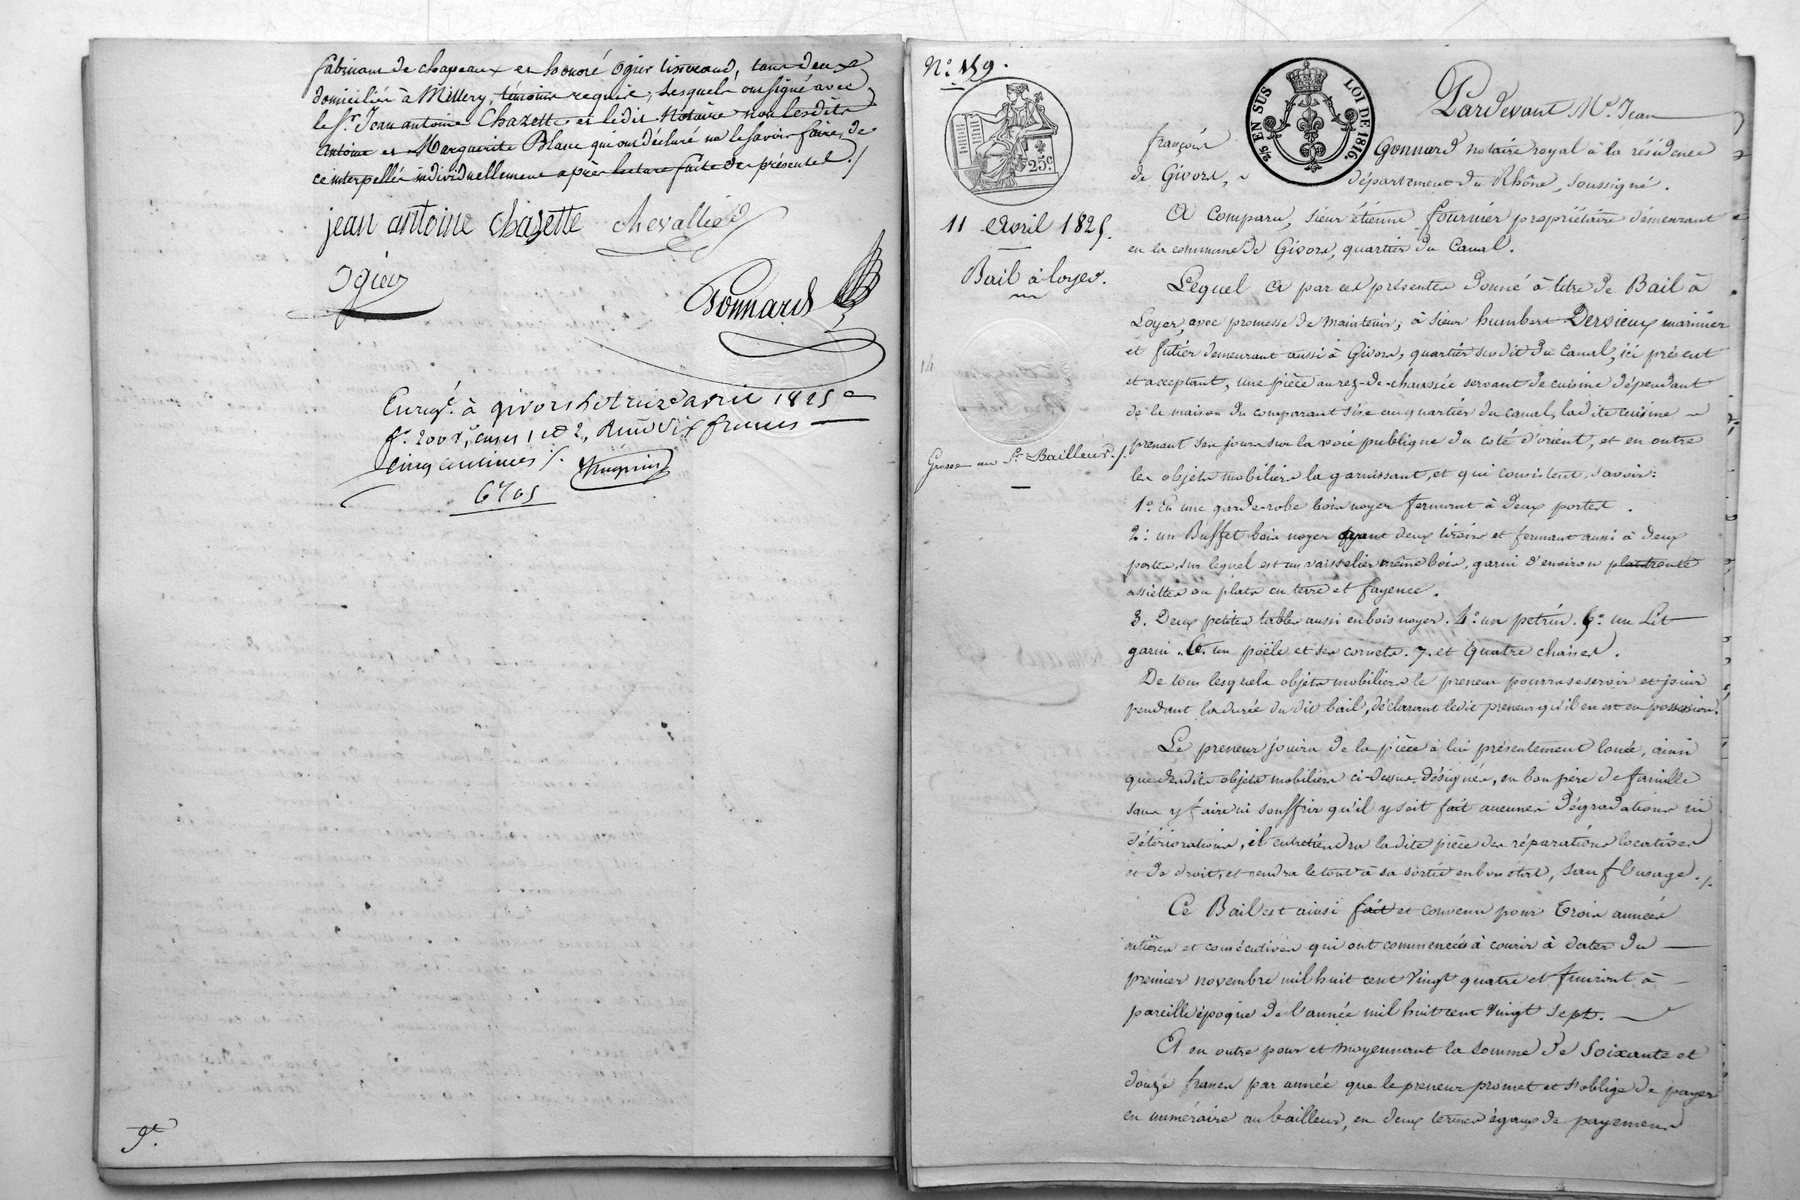 fabricant de chapeaux et honoré Ogier tisserand, tous deux
domiciliés à Millery, témoins requis, lesquels ont signé avec
le Sr. Jean antoine Chazette et ledit Notaire non lesdits
Antoine et Marguerite Blanc qui ont déclaré ne le savoir faire, de
ce interpellés individuellement après lecture faite des présentes ./
jean antoine chazette chevallier
Ogier
Gonnard
Enregé. à givors le treize avril 1825
fo. 200 Vo. cases 1 et 2, Reçu six francs
cinq centimes
6f 05
gt.
No. 159.
25c.
2/5 EN SUS
LOI DE 1816.
11 Avril 1825.
Bail à loyer.
Grosse au Sr. Bailleur ./.
Pardevant Me. Jean
françois Gonnard notaire royal à la résidence
de Givors, département du Rhône, soussigné.
A comparu, sieur étienne fournier propriétaire demeurant
en la commune de Givors, quartier du Canal.
Lequel a par ces présentes donné à titre de Bail à
Loyer, avec promesse de maintenir, à sieur humbert Dervieux marinier
et futier demeurant aussi à Givors, quartier susdit du Canal, ici présent
et acceptant, une pièce au rez-de-chaussée servant de cuisine dépendant
de la maison du comparant sise au quartier du canal, ladite cuisine
prenant ses jours sur la voie publique du coté d'orient, et en outre
les objets mobiliers la garnissant, et qui consistent, savoir:
1o. En une garde-robe bois noyer fermant à deux portes.
2o. un Buffet bois noyer ayant deux tiroirs et fermant aussi à deux
portes, sur lequel est un vaisselier même bois, garni d'environ
assiettes ou plats en terre et fayence.
3. Deux petites tables aussi en bois noyer. 4o. un petrin. 5o. un Lit
garni. 6. un poële et ses cornets. 7. et quatre chaises.
De tous lesquels objets mobiliers le preneur pourra se servir et jouir
pendant la durée du dit bail, déclarant ledit preneur qu'il en est en possession.
Le preneur jouira de la pièce à lui présentement louée, ainsi
que desdits objets mobiliers ci-dessus désignés, en bon père de famille
sans y faire ni souffrir qu'il y soit fait aucunes dégradations ni
détériorations, il entretiendra ladite pièce des réparations locatives
et de droit, et rendra le tout à sa sortie en bon état, sauf l'usage ./.
Ce Bail est ainsi fait et convenu pour trois années
entières et consécutives qui ont commencées à courir à dater du
premier novembre mil huit cent vingt quatre et finiront à
pareille époque de l'année mil huit cent vingt sept.
Et en outre pour et moyennant la somme de soixante et
douze francs par année que le preneur promet et s'oblige de payer
en numéraire au bailleur, en deux termes égaux de payemens